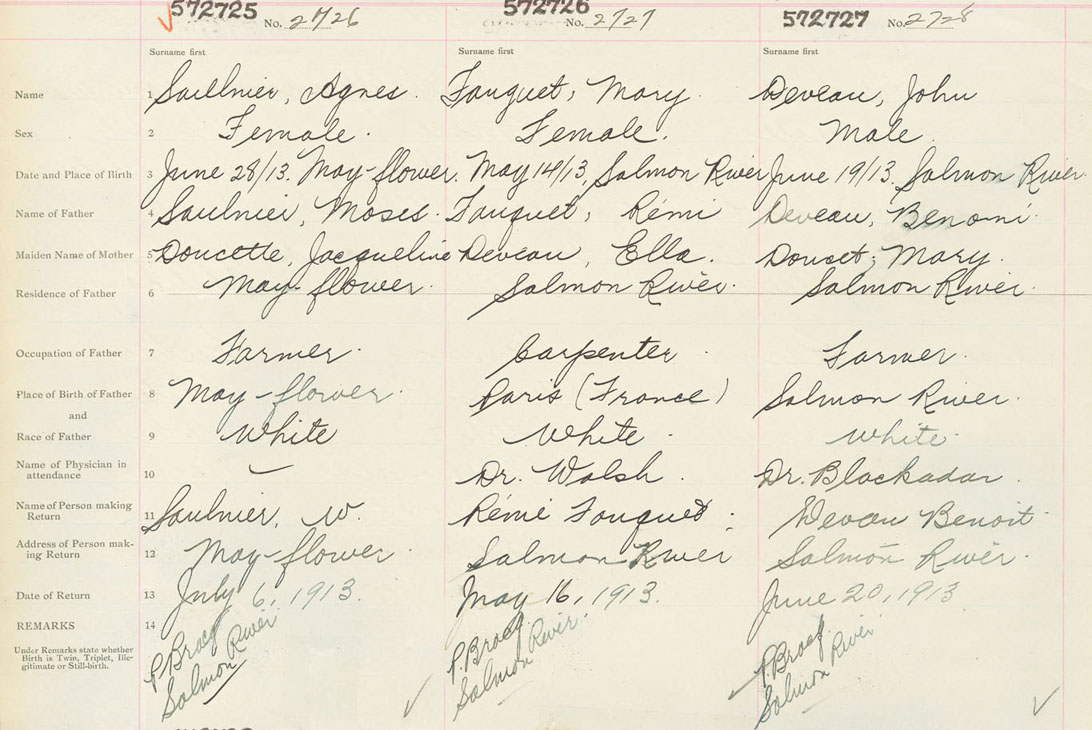 572725 No. 2726 572726 No. 2727 572727 No. 2728
Surname first Surname first Surname first
Name 1 Saulnier, Agnes. Fouquet, Mary. Deveau, John
Sex 2 Female. Female. Male.
Date and Place of Birth 3 June 28/13. May-flower. May 14/13, Salmon River June 19/13. Salmon River.
Name of Father 4 Saulnier, Moses. Fouquet, Rémi Deveau, Benomi.
Maiden Name of Mother 5 Doucette, Jacqueline Deveau, Ella. Doucet, Mary.
Residence of Father 6 May-flower. Salmon River. Salmon River.
Occupation of Father 7 Farmer. Carpenter. Farmer.
Place of Birth of Father 8 May-flower. Paris (France) Salmon River.
and
Race of Father 9 White White. White.
Name of Physician in
attendance 10 Dr. Walsh. Dr. Blackadar.
Name of Person making
Return 11 Saulnier, W. Rémi Fouquet. Deveau Benoit.
Address of Person mak-
ing Return 12 May-flower. Salmon River Salmon River.
Date of Return 13 July 6, 1913. May 16, 1913. June 20, 1913
REMARKS 14
Under Remarks state whether
Birth is Twin, Triplet, Ille-
gitimate or Still-birth.
P. P. P.
Salmon River Salmon River. Salmon River